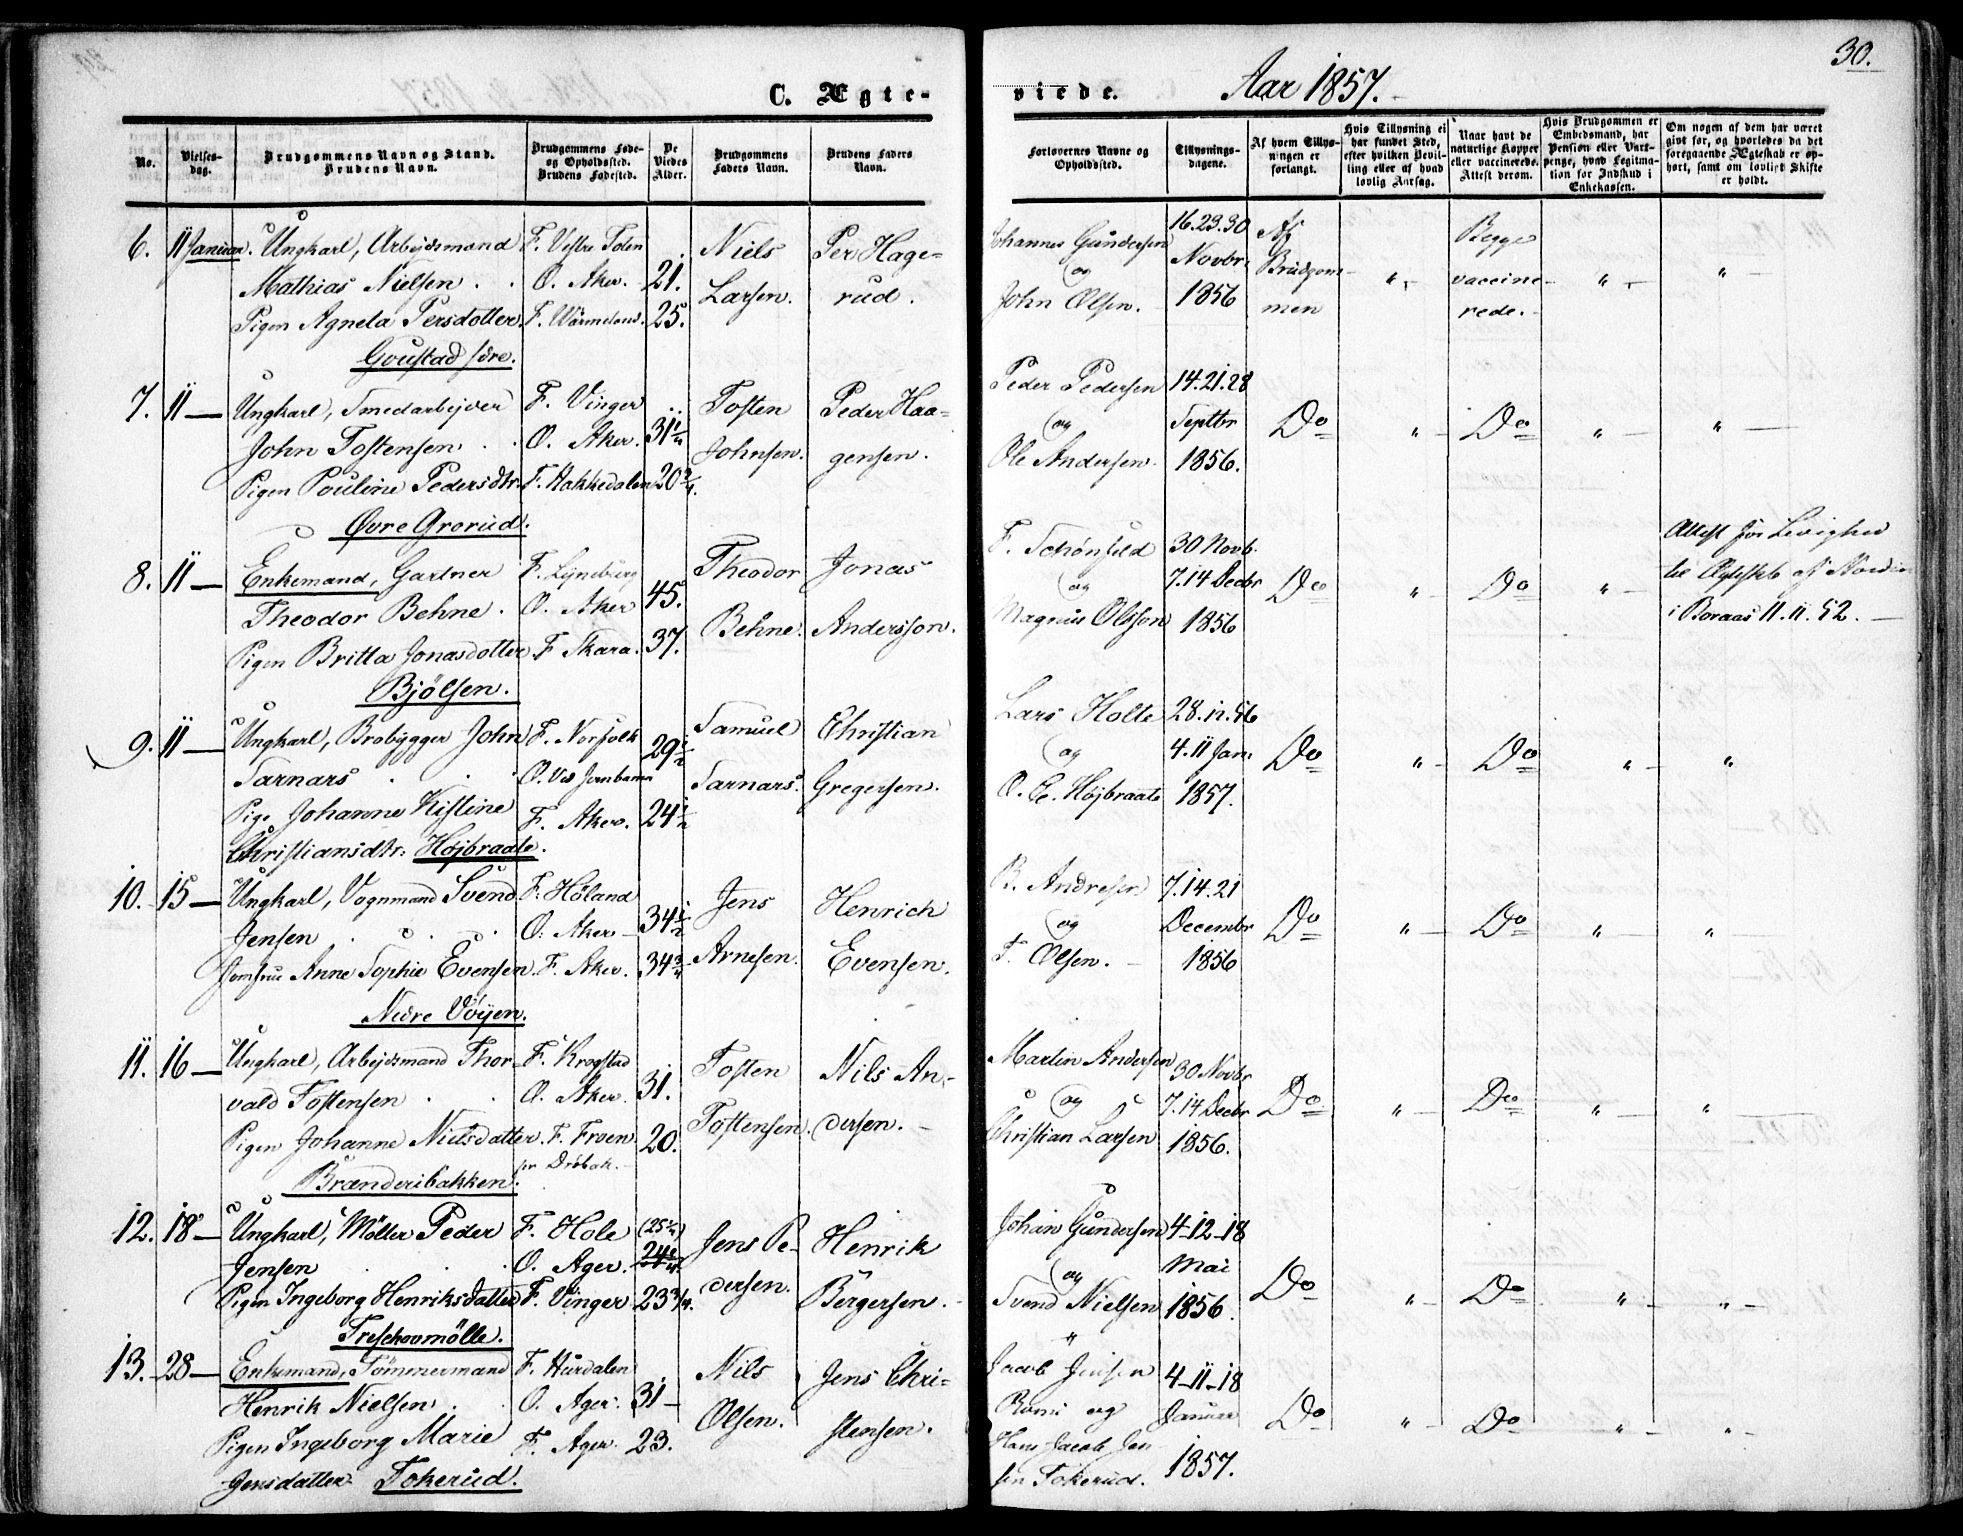 30.
C. Ægte-
viede. Aar 1857.
No.
Vielses-
dag.
Brudgommens Navn og Stand.
Brudens Navn.
Brudgommens Føde-
og Opholdssted.
Brudens Fødested.
De
Viedes
Alder.
Brudgommens
Faders Navn.
Brudens Faders
Navn.
Forlovernes Navne og
Opholdssted.
Tillysnings-
dagene.
Af hvem Tillys-
ningen er
forlangt.
Hvis Tillysning ei
har fundet Sted,
efter hvilken Bevil-
ling eller af hvad
lovlig Aarsag.
Naar havt de
naturlige Kopper
eller vaccinerede.
Attest derom.
Hvis Brudgommen er
Embedsmand, har
Pension eller Vart-
penge, hvad Legitima-
tion for Indskud i
Enkekassen.
Om nogen af dem har været
givt før, og hvorledes da det
foregaaende Ægteskab er op-
hørt, samt om lovligt Skifte
er holdt.
6. 11 Januar. Ungkarl, Arbejdsmand
Mathias Nielsen .
Pigen Agneta Persdotter.
Goustad søre.
F. Vestre Toten
O. Aker. 21.
F. Wärmeland. 25.
Niels
Larsen.
Per Hage-
rud.
Johannes Gundersen
og
John Olsen.
16. 23. 30
Novbr.
1856
Af
Brudgom-
men
" -
Begge
vaccine-
rede.
" -
" -
7. 11 — Ungkarl, Smedarbejder
John Tostensen .
Pigen Pouline Pedersdtr.
Øvre Grorud.
F. Vinger
O. Aker. 31 1/4
F. Hakkedalen 20 3/4.
Tosten
Johnsen.
Peder Haa-
gensen.
Peder Pedersen
og
Ole Andersen.
14. 21. 28
Septbr
1856.
Do
" -
Do
" -
" -
8. 11 — Enkemand, Gartner
Theodor Behne .
Pigen Britta Jonasdotter
Bjölsen.
F. Lyneburg
O. Aker 45.
F. Skara. 37.
Theodor
Behne.
Jonas
Andersson.
F. Schønfeld
og
Magnus Olsson
30 Novb.
7. 14 Decbr
1856
Do
" -
Do
" -
Attest for Ledighed
til Ægteskab af Nordin
i Boraas 11. 11. 52. —
9. 11 — Ungkarl, Brobygger John
Tarnars . .
Pige Johanne Kistine
Christiansdtr. Højbraate.
F. Norfolk 29 1/2
O. Ved Jernbanen
F. Aker. 24 1/2
Samuel
Tarnars.
Christian
Gregersen.
Lars Holte
og
O. E. Højbraate
28. 12. 56
4. 11 Jan.
1857.
Do
" -
Do
" -
"
10. 15 — Ungkarl, Vognmand Svend
Jensen . . .
Jomfrue Anne Sophie Evensen.
Nedre Vöyen.
F. Höland
O. Aker 34 1/2
F. Aker. 34 3/4
Jens
Arnesen.
Henrich
Evensen.
B. Andresen
og
T. Olsen. -
7. 14. 21
Decembr
1856
Do
" -
Do
" -
"
11. 16 — Ungkarl, Arbejdsmand Thor-
vald Tostensen . .
Pigen Johanne Nielsdatter.
Brænderibakken.
F. Krogstad
O. Aker. 31.
F. Froen 20.
pr Dröbak.
Tosten
Tostensen.
Nils An-
dersen. -
Martin Andersen
og
Christian Larsen
30 Novbr
7. 14 Decbr
1856.
Do
" -
Do
" -
" -
12. 18 — Ungkarl, Möller Peder
Jensen . .
Pigen Ingeborg Henriksdatter
Treschovmölle.
F. Hole
O. Ager.
F. Vinger 23 3/4.
Jens Pe-
dersen.
Henrik
Børgersen. -
Johan Gundersen
og
Svend Nielsen
"
4-12-18
Mai
1856.
Do
" -
Do
" -
" -
13. 28 — Enkemand, Tømmermand
Henrik Nielsen .
Pigen Ingeborg Marie
Jensdatter. Tokerud.
F. Hurdalen
O. Ager. 31 -
F. Ager. 23.
Nils
Olsen.
Jens Chri-
stensen.
Jacob Jensen
Romi og
Hans Jacob Jen
sen Tokerud.
4-11-18
Januar
1857.
Do
" -
Do
" -
" -